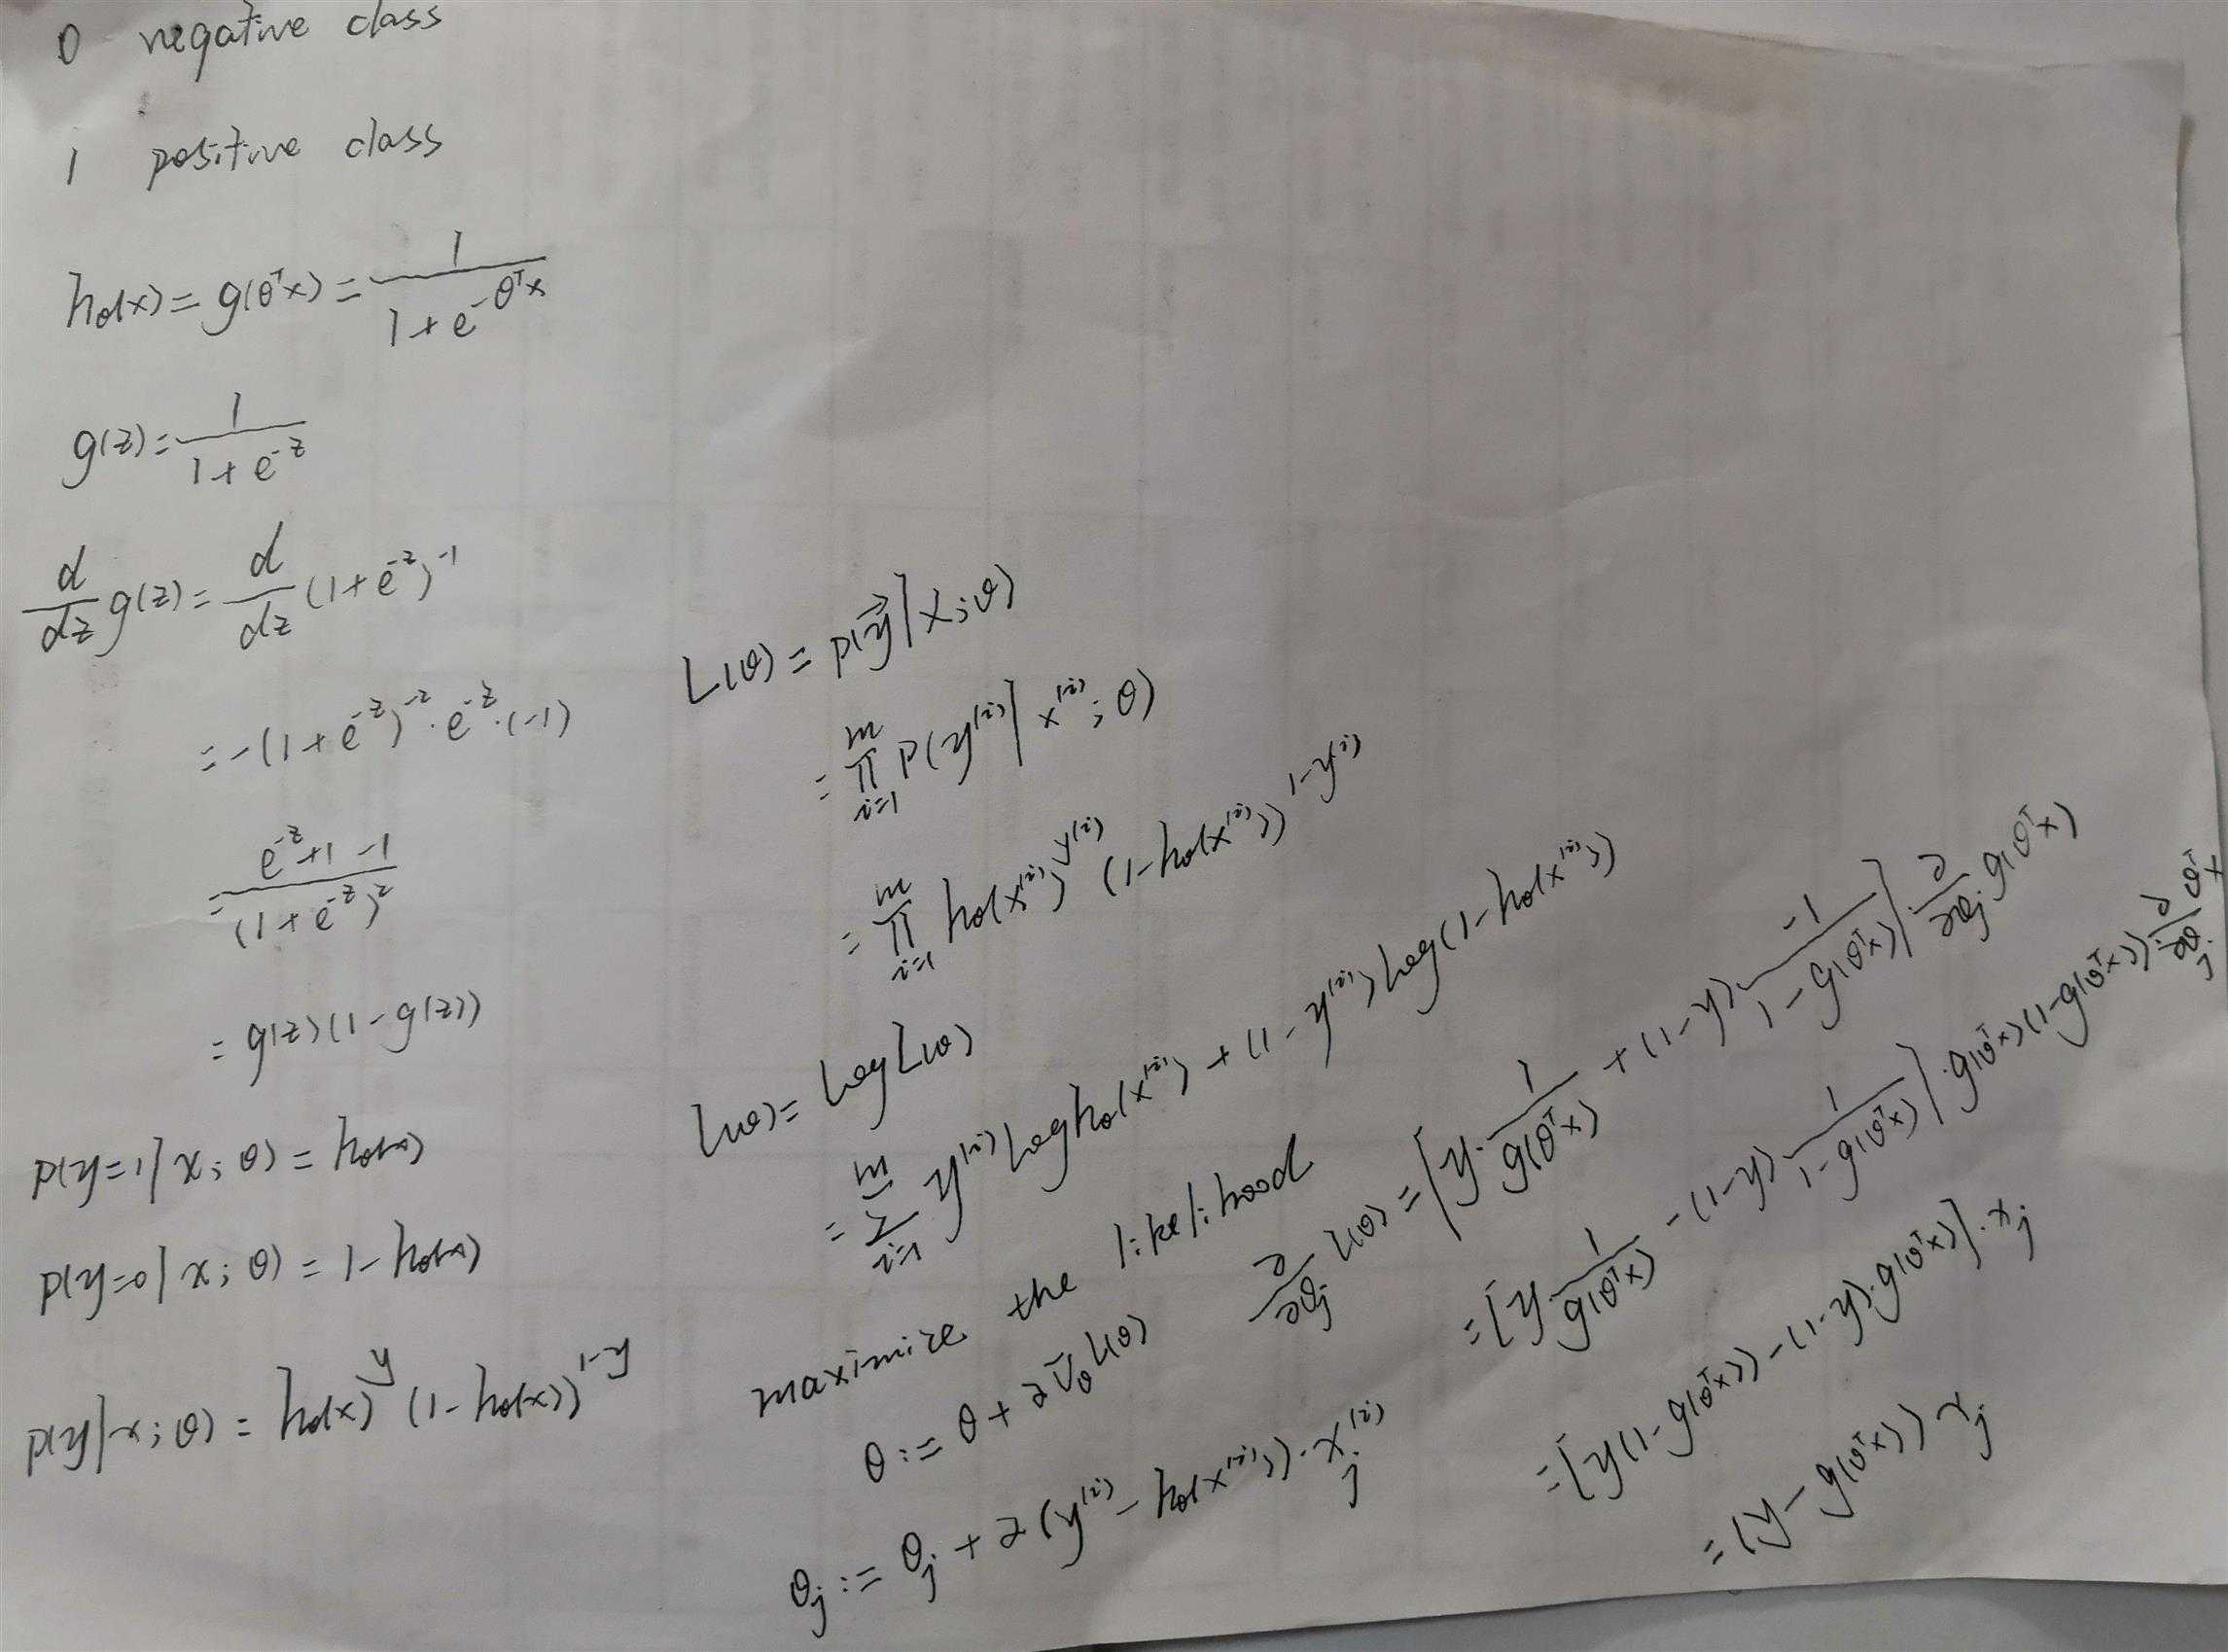 0 negative class
1 positive class
h_θ(x) = g(θ^T x) = 1 / (1 + e^{-θ^T x})
g(z) = 1 / (1 + e^{-z})
d/dz g(z) = d/dz (1 + e^{-z})^{-1}
= -(1 + e^{-z})^{-2} · e^{-z} · (-1)
= (e^{-z} + 1 - 1) / (1 + e^{-z})^2
= g(z)(1 - g(z))
P(y=1 | x; θ) = h_θ(x)
P(y=0 | x; θ) = 1 - h_θ(x)
P(y | x; θ) = h_θ(x)^y (1 - h_θ(x))^{1-y}
L(θ) = P(y⃗ | X; θ)
= ∏_{i=1}^{m} P(y^{(i)} | x^{(i)}; θ)
= ∏_{i=1}^{m} h_θ(x^{(i)})^{y^{(i)}} (1 - h_θ(x^{(i)}))^{1-y^{(i)}}
l(θ) = log L(θ)
= ∑_{i=1}^{m} y^{(i)} log h_θ(x^{(i)}) + (1 - y^{(i)}) log(1 - h_θ(x^{(i)}))
maximize the likelihood
θ := θ + α ∇_θ l(θ)
θ_j := θ_j + α (y^{(i)} - h_θ(x^{(i)})) · x_j^{(i)}
∂/∂θ_j l(θ) = [y · 1/g(θ^T x) + (1-y) · -1/(1 - g(θ^T x))] · ∂/∂θ_j g(θ^T x)
= [y · 1/g(θ^T x) - (1-y) · 1/(1 - g(θ^T x))] · g(θ^T x)(1 - g(θ^T x)) ∂/∂θ_j θ^T x
= [y(1 - g(θ^T x)) - (1-y) · g(θ^T x)] · x_j
= (y - g(θ^T x)) · x_j